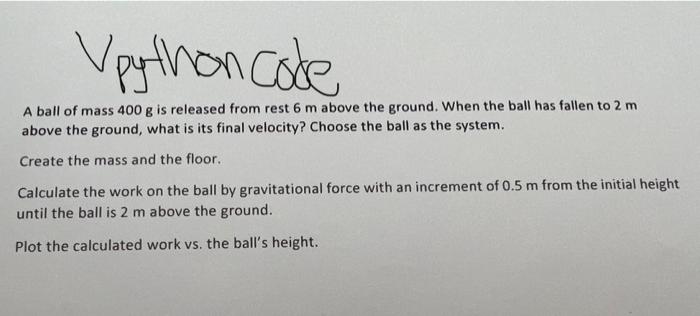 Vpython code
A ball of mass 400 g is released from rest 6 m above the ground. When the ball has fallen to 2 m
above the ground, what is its final velocity? Choose the ball as the system.
Create the mass and the floor.
Calculate the work on the ball by gravitational force with an increment of 0.5 m from the initial height
until the ball is 2 m above the ground.
Plot the calculated work vs. the ball's height.